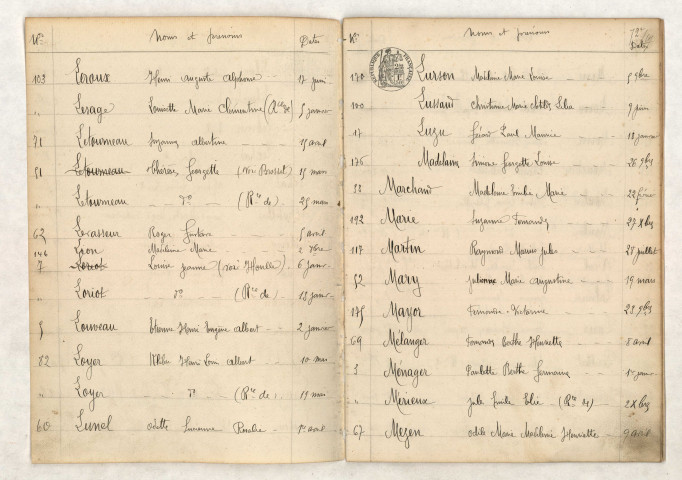 Nos Noms et prénoms Dates
103 Leroux Henri Auguste Alphonse 17 juin
" Lesage Louisette Marie Clémentine 5 janvier
71 Letourneau Suzanne Albertine 15 avril
51 Letourneau Thérèse Georgette (voir Brossel) 15 mars
" Letourneau do (Rte de) 25 mars
62 Levasseur Roger Gustave 5 avril
146 Lyon Madeleine Marie 2 8bre
7 Loriot Louise Jeanne 6 janv
" Loriot do (Rte de) 13 janv
5 Louveau Etienne Henri Eugène Albert 2 janvier
82 Loyer Henri Louis Albert 10 mai
" Loyer do (Rte de) 19 mai
60 Lunel Odette Simonne Rosalie 1er avril
No Noms et prénoms Dates
170 Lurson Madeleine Marie Louise 5 9bre
100 Lussaud Christiane Marie 9 juin
17 Luzu Gérard Paul Maurice 18 janvier
176 Madelain Simone Georgette Louise 26 9bre
33 Marchand Madeleine Emilie Marie 22 févr
192 Marie Suzanne Fernande 27 Xbre
117 Martin Raymonde 28 juillet
52 Mary Julienne Marie Augustine 19 mars
175 Mayor 23 9bre
69 Mélanger Berthe Henriette 8 avril
3 Ménager Paulette Berthe Germaine 1er janv
" Mérieux Jules Emile Elie 2 Xbre
67 Mezen Odile Marie Madeleine Henriette 9 avril